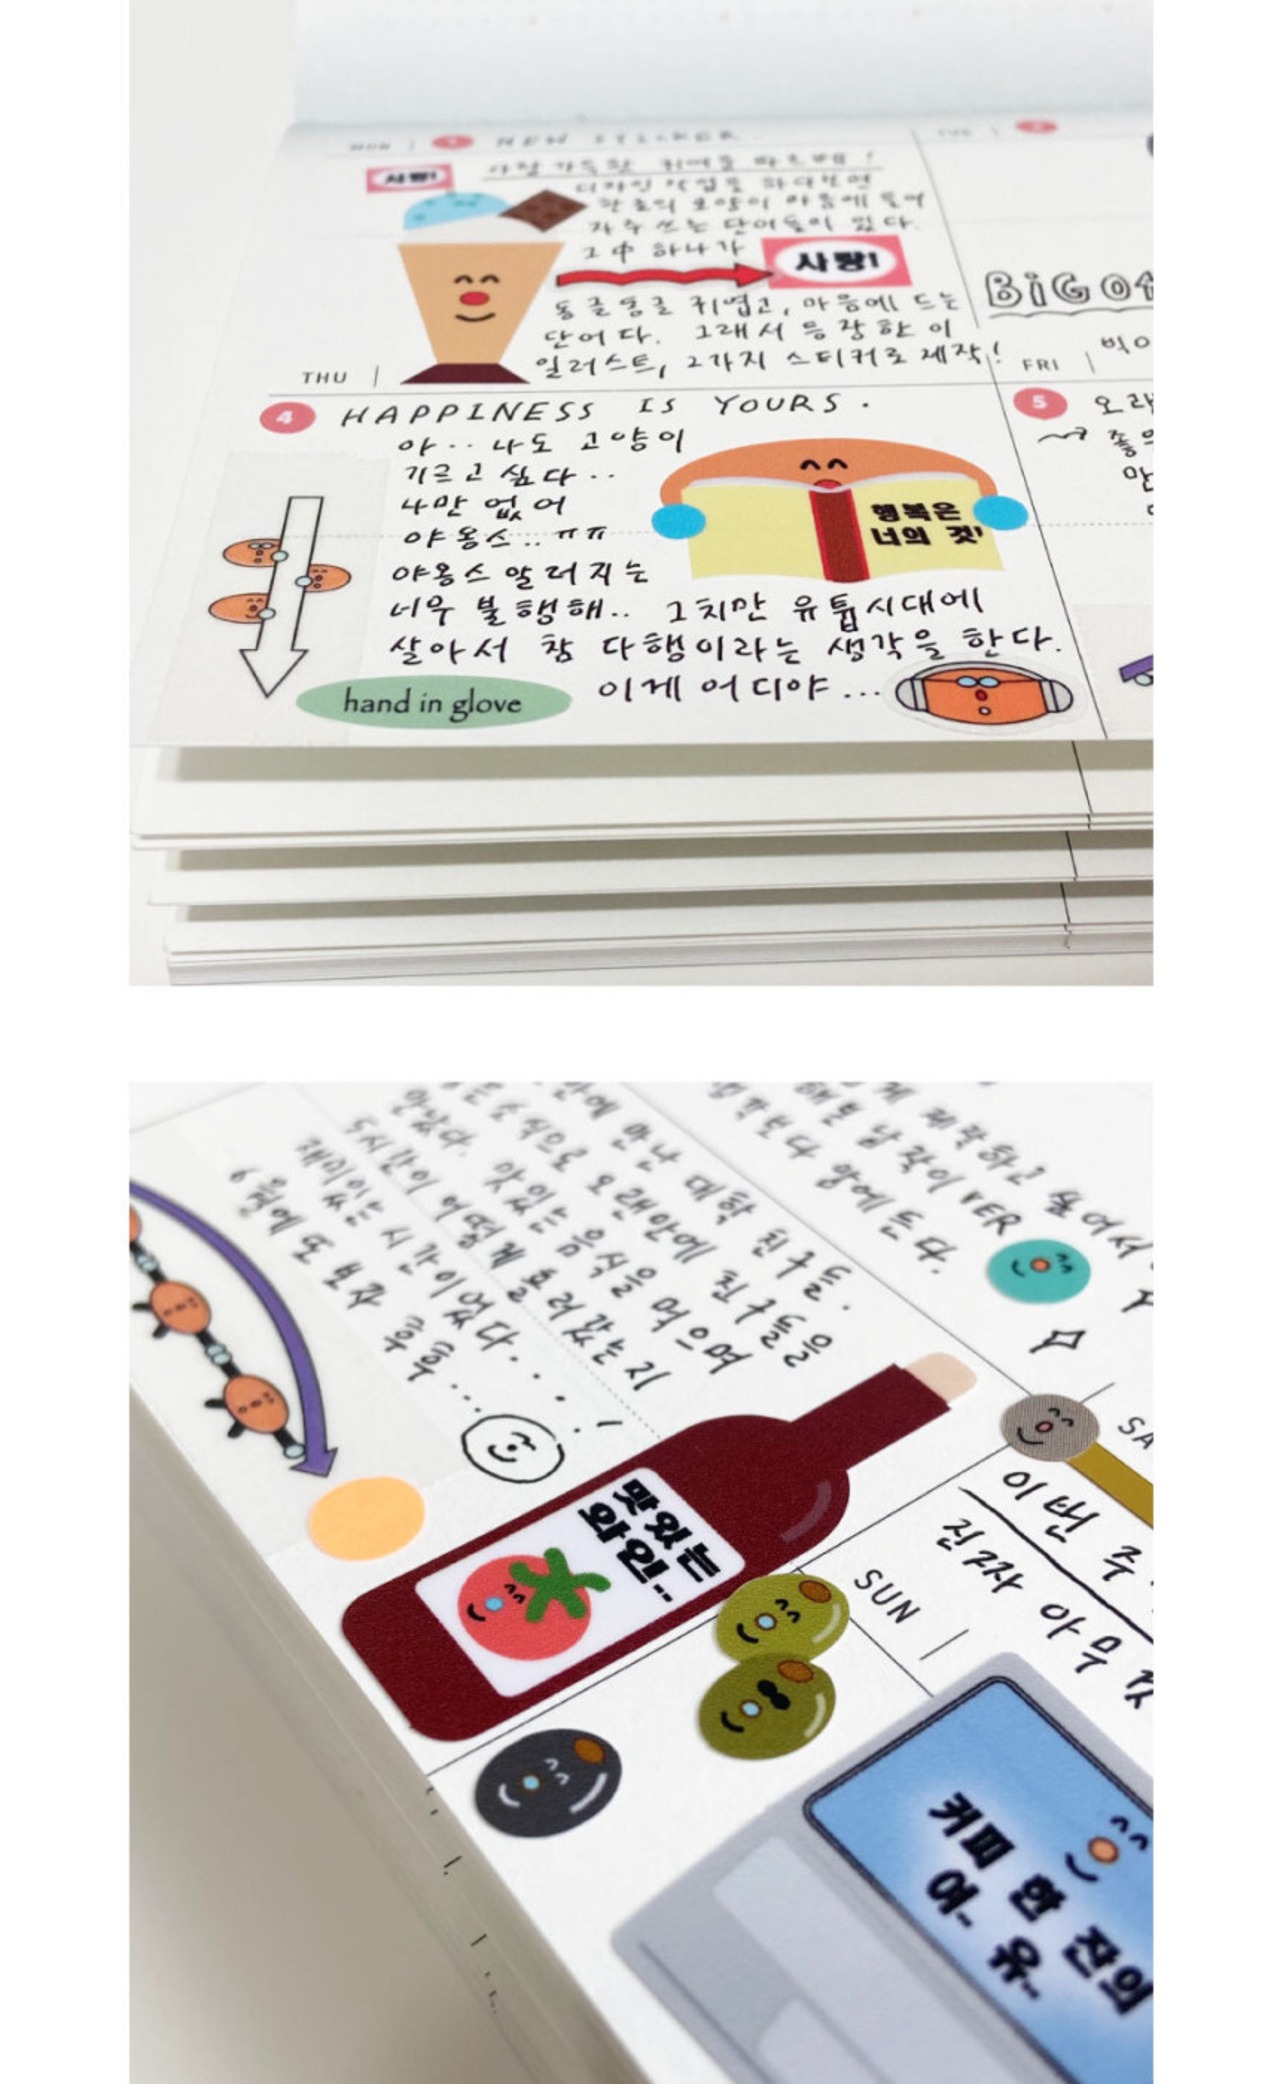 MON
NEW STICKER
TUE
사랑!
아침 가득한 귀여움
디자인 작업을 하다보면
한글의 모양이 마음에 들어
자주 쓰는 단어들이 있다.
그 中 하나가
사랑!
동글동글 귀엽고, 마음에 드는
단어다. 그래서 등장한 이
일러스트, 2가지 스티커로 제작!
BiG
THU
FRI
4 HAPPINESS IS YOURS.
5
아.. 나도 고양이
기르고 싶다..
나만 없어
야옹스.. ㅠㅠ
야옹스 알러지는
너무 불행해.. 그치만 유튭시대에
살아서 참 다행이라는 생각을 한다.
이게 어디야...
행복은
너의 것!
hand in glove
만에 만난 대학 친구들.
소식으로 오랜만에 친구들을
만났다. 맛있는 음식을 먹으며
5시간이 어떻게 흘러갔는지
재미있는 시간이었다....!
6월에 또 보자 후후...
게 제작하고 싶어서
해본 납작이 VER
생각보다 맘에 든다.
맛있는
와인..
SA
이번 주
진짜 아무
SUN
커피 한 잔의
여- 유..